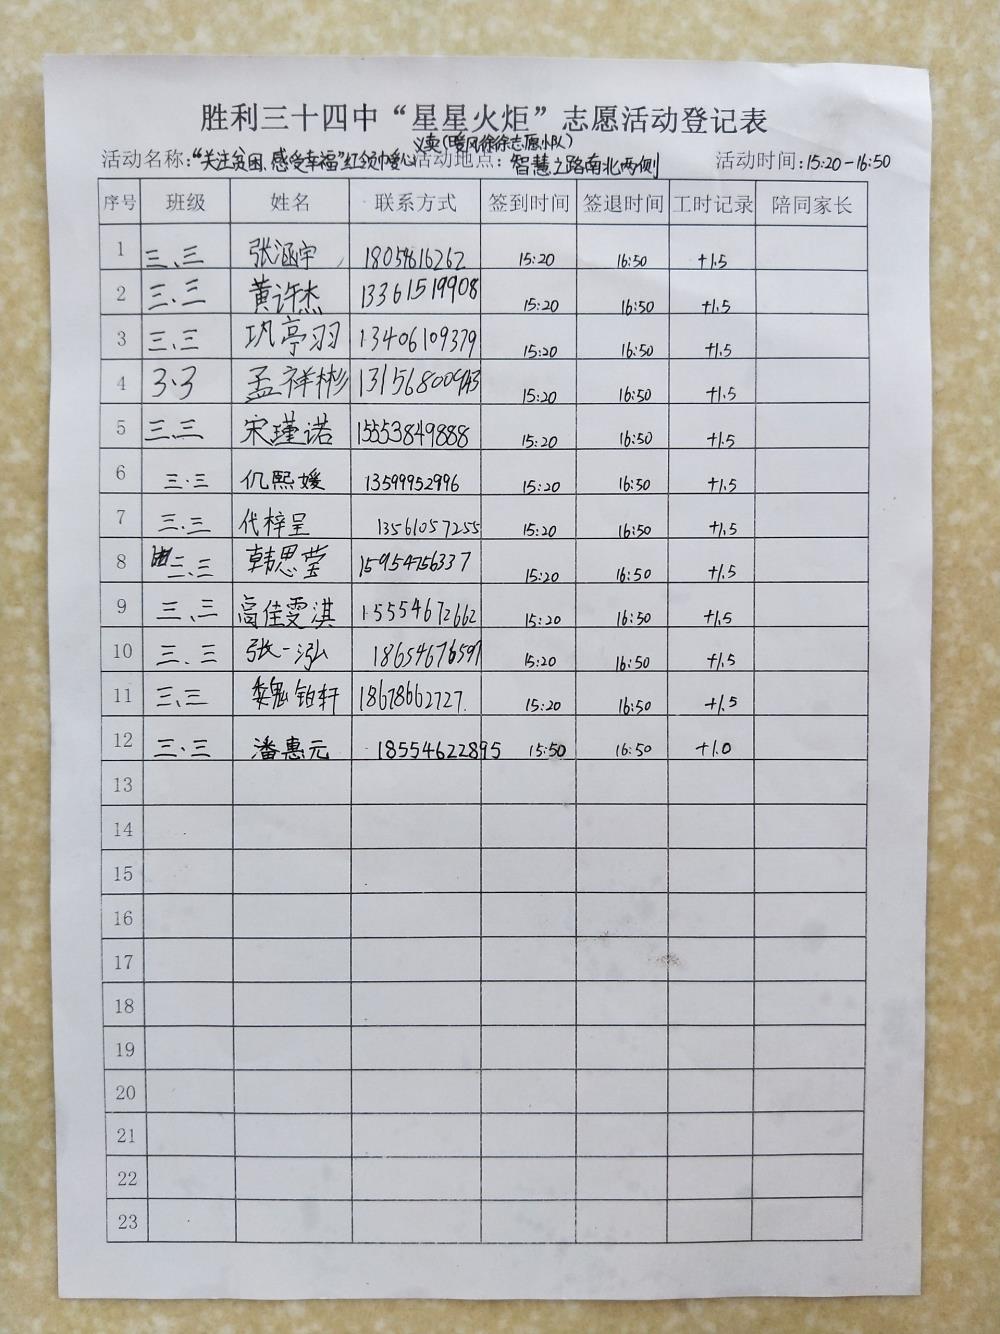 胜利三十四中“星星火炬”志愿活动登记表
义卖(暖风徐徐志愿小队)
活动名称:“关注贫困、感受幸福”红领巾爱心 活动地点: 智慧之路南北两侧 活动时间:15:20-16:50
序号 班级 姓名 联系方式 签到时间 签退时间 工时记录 陪同家长
1 三、三 张涵宇 18054616262 15:20 16:50 +1.5
2 三、三 黄许杰 13361519908 15:20 16:50 +1.5
3 三、三 巩亭羽 13406109379 15:20 16:50 +1.5
4 3·3 孟祥彬 15:20 16:50 +1.5
5 三、三 宋瑾诺 15553849888 15:20 16:50 +1.5
6 三·三 仉熙媛 13599952996 15:20 16:50 +1.5
7 三·三 代梓呈 13561057255 15:20 16:50 +1.5
8 三、三 韩思莹 15954756337 15:20 16:50 +1.5
9 三、三 高佳雯淇 15554672662 15:20 16:50 +1.5
10 三、三 张一泓 18654676597 15:20 16:50 +1.5
11 三、三 魏铂轩 18678662727 15:20 16:50 +1.5
12 三·三 潘惠元 18554622895 15:50 16:50 +1.0
13
14
15
16
17
18
19
20
21
22
23